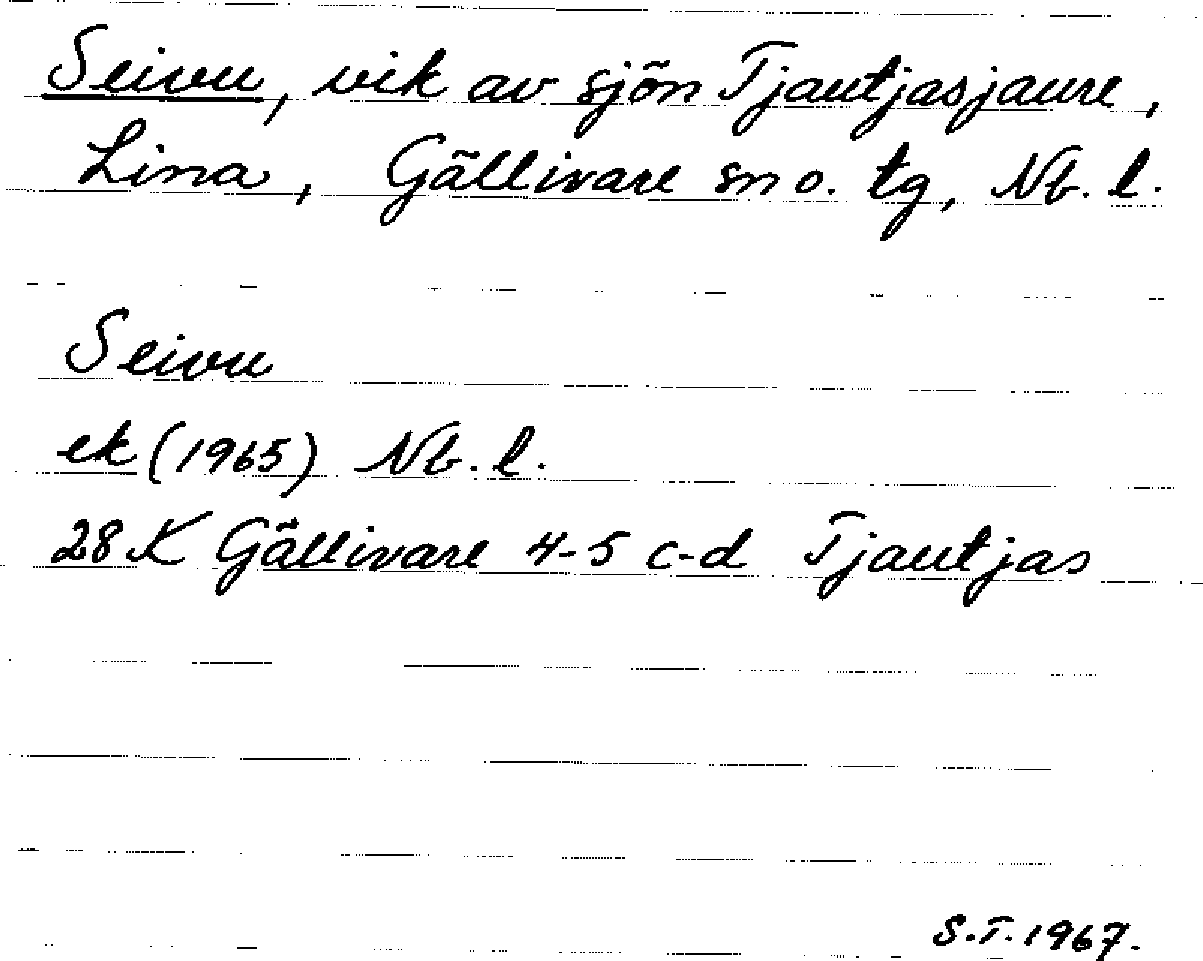 Seivu, vik av sjön Tjautjasjaure,
Lina, Gällivare sn o. tg, Nb. l.
Seivu
ek (1965) Nb. l.
28 K Gällivare 4-5 c-d Tjautjas
S.T. 1967.